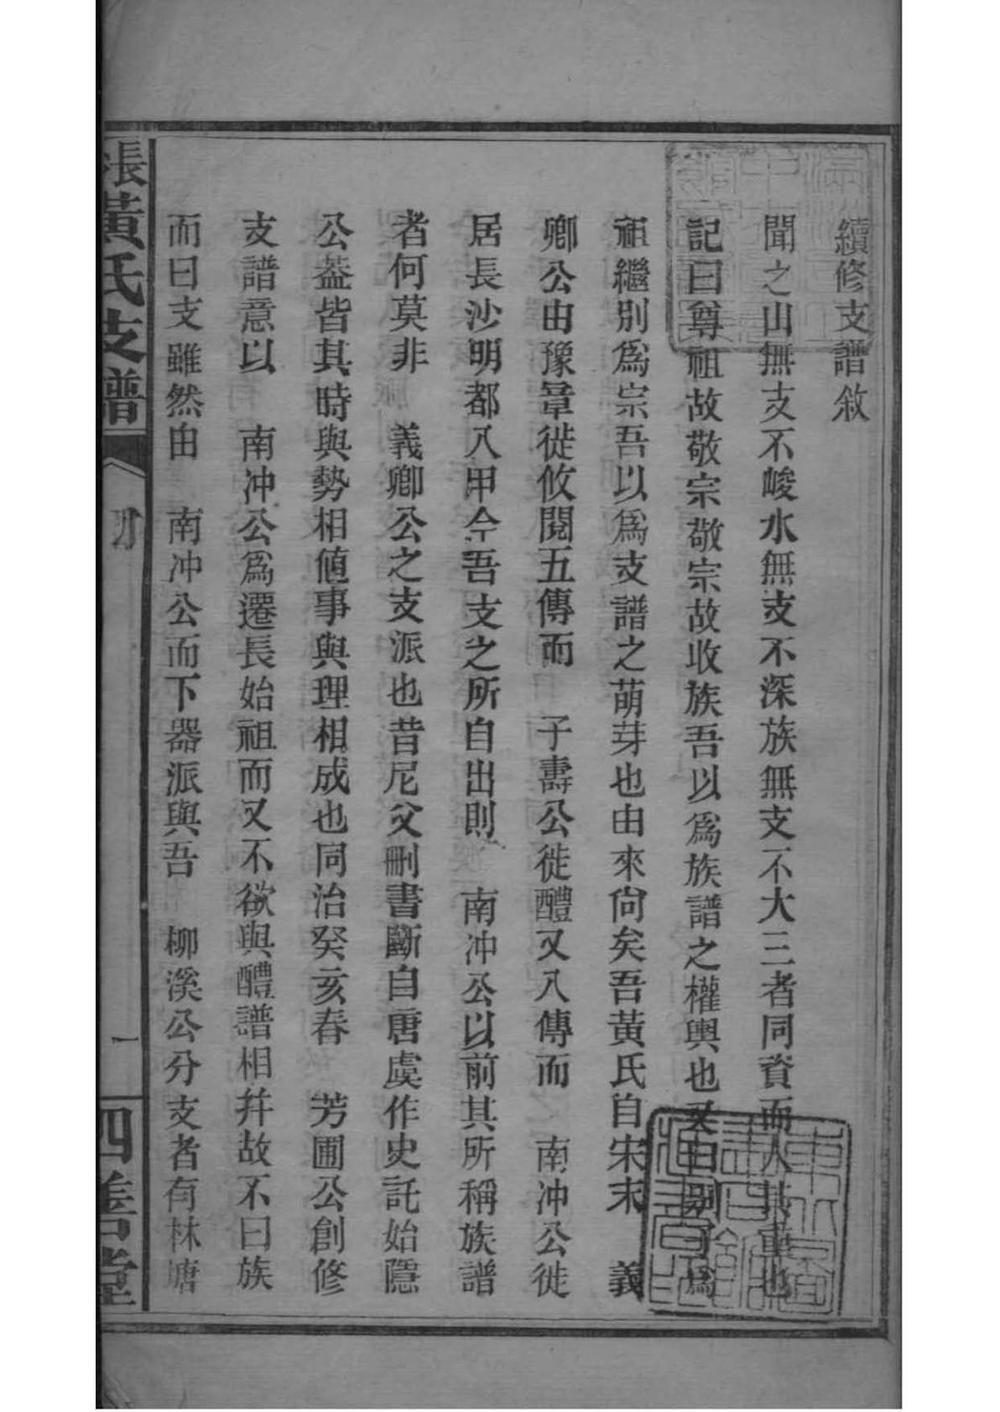 續修支譜敘
聞之山無支不峻水無支不深族無支不大三者同資而人其重也
記曰尊祖故敬宗敬宗故收族吾以爲族譜之權輿也又曰別子爲
祖繼別爲宗吾以爲支譜之萌芽也由來尙矣吾黃氏自宋末　義
卿公由豫章徙攸閱五傳而　子壽公徙醴又八傳而　南冲公徙
居長沙明都八甲今吾支之所自出則　南冲公以前其所稱族譜
者何莫非　義卿公之支派也昔尼父刪書斷自唐虞作史託始隱
公葢皆其時與勢相值事與理相成也同治癸亥春　芳圃公創修
支譜意以　南冲公爲遷長始祖而又不欲與醴譜相幷故不曰族
而曰支雖然由　南冲公而下器派與吾　柳溪公分支者有林塘
黃氏支譜
一
四善堂